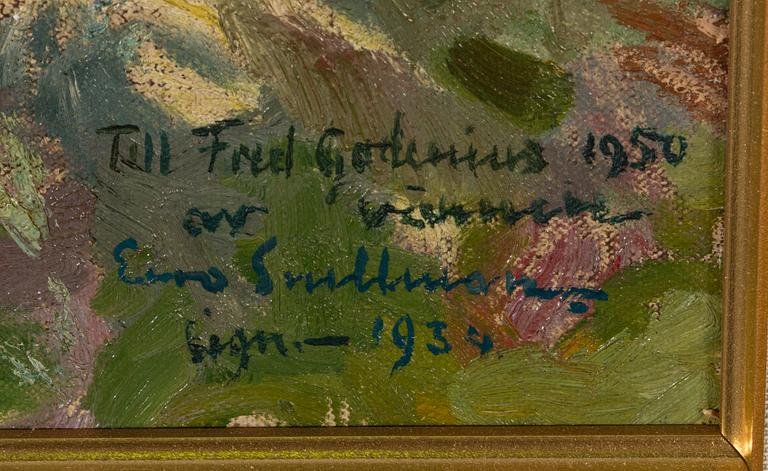 Till Fred Godenius 1950
av vännen
Eero Snellman
sign.- 1934.